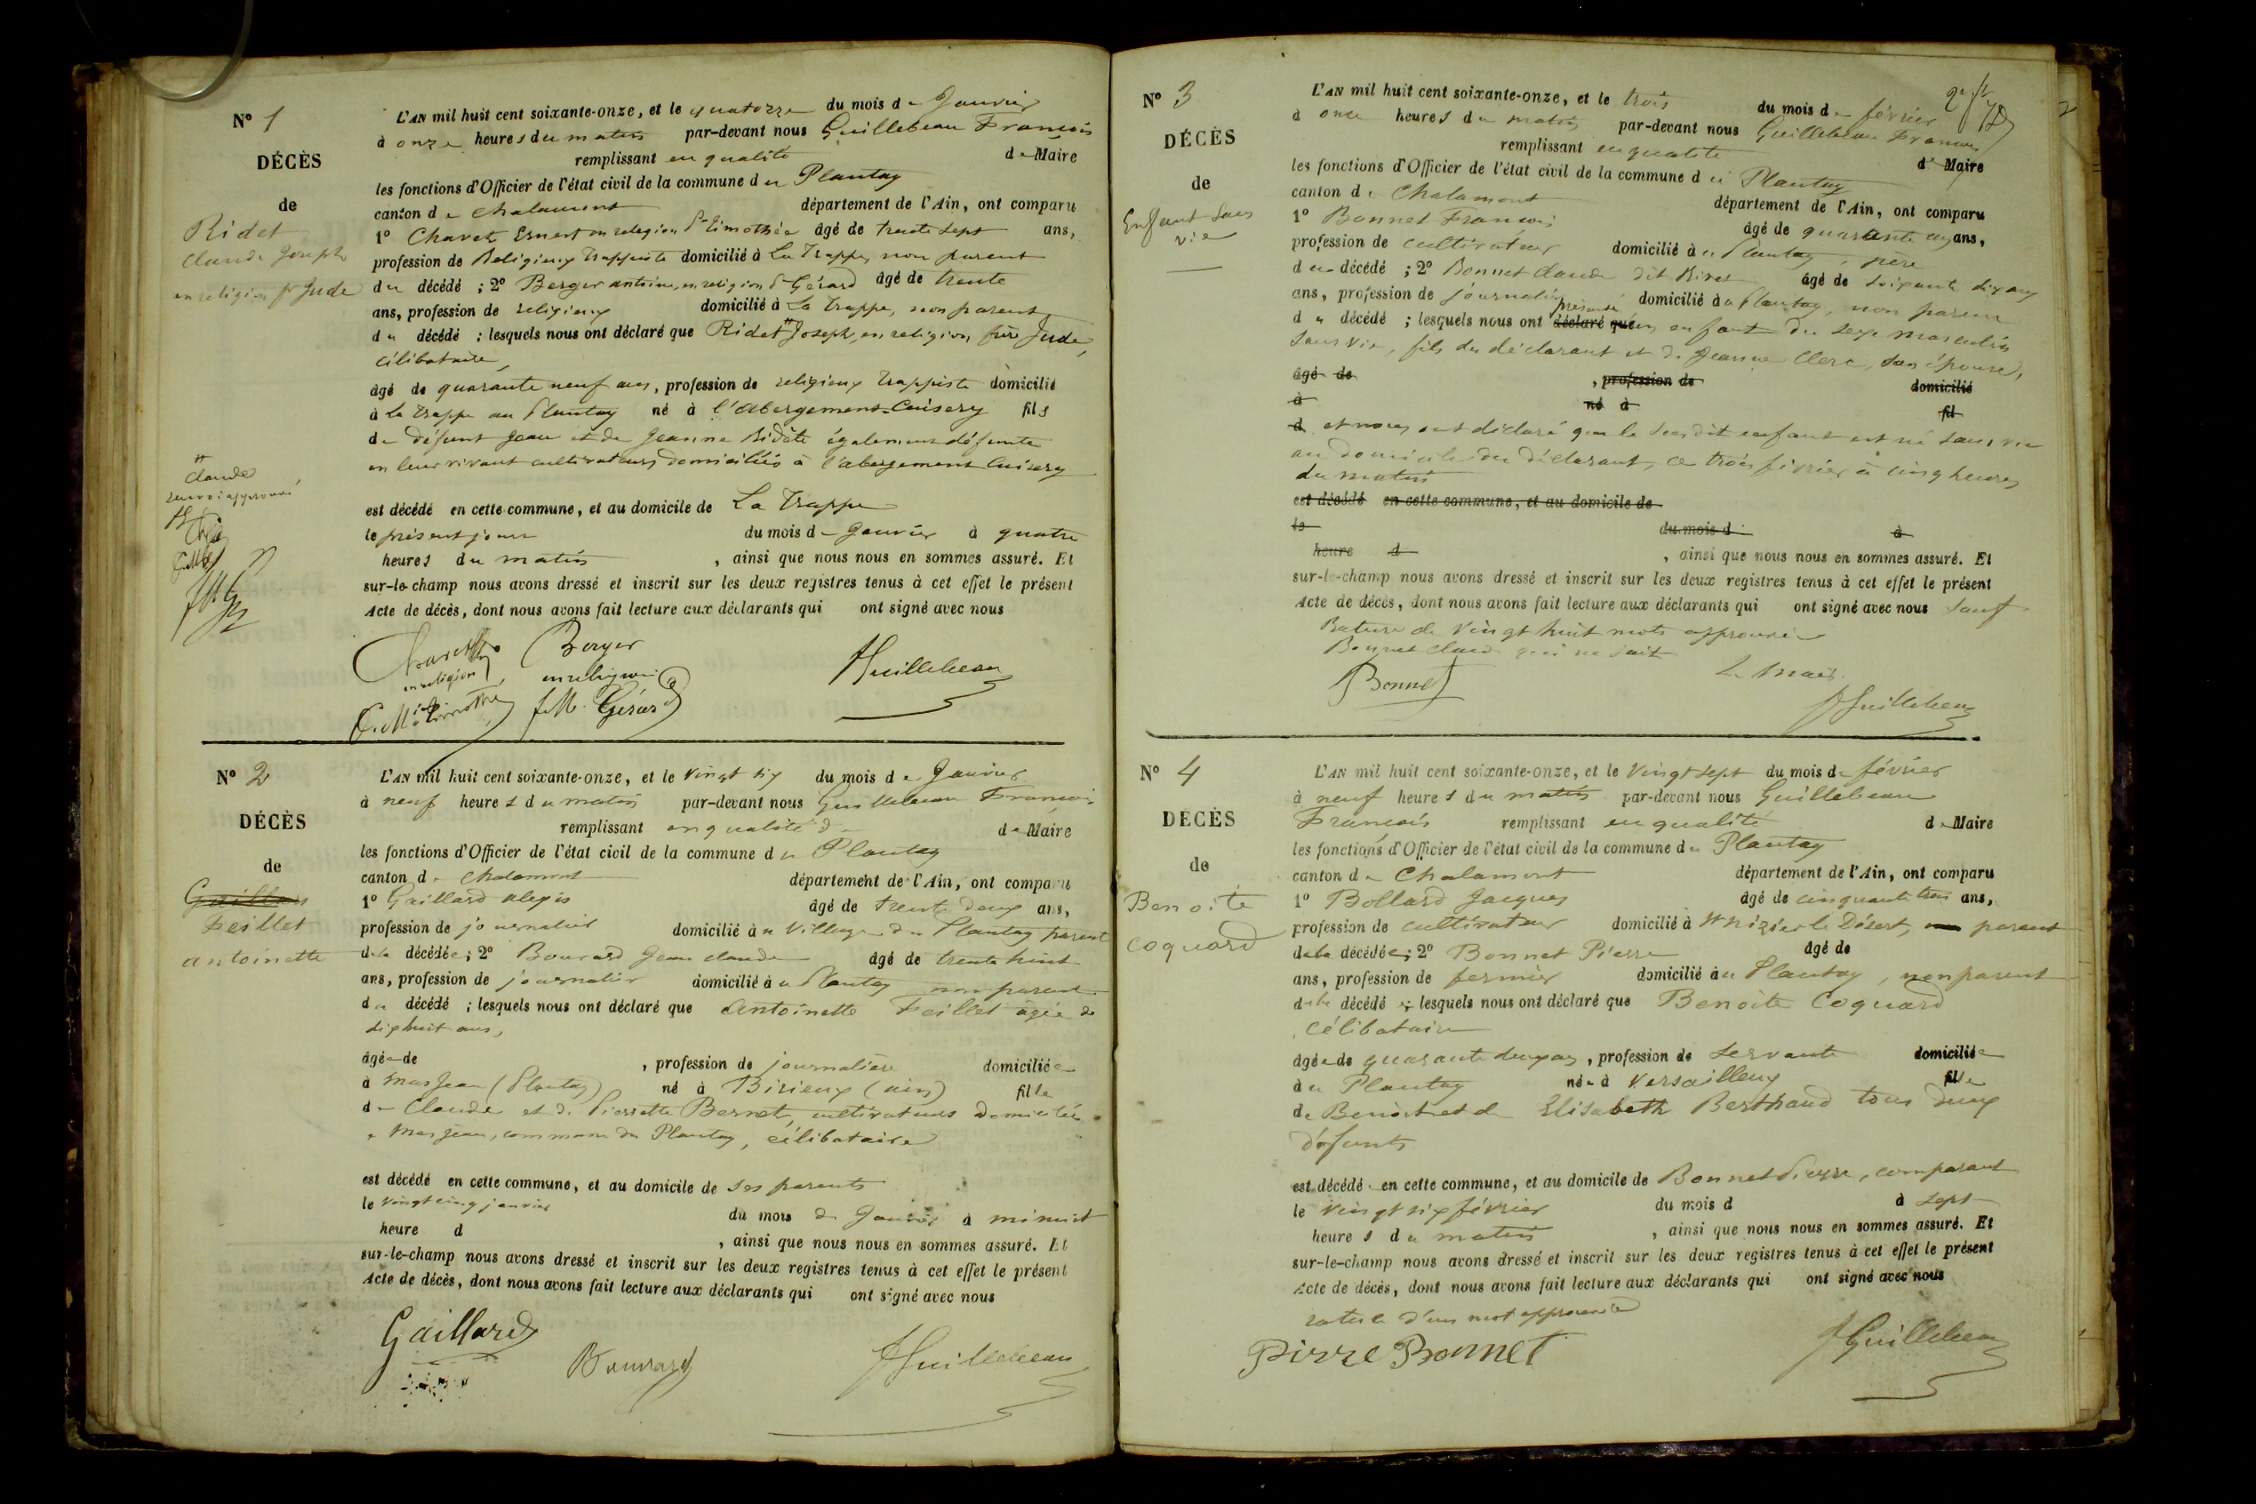 N° 1
DÉCÈS
de
Ridet
Claude Joseph
en religion fr Jude
L'AN mil huit cent soixante-onze, et le quatorze du mois de Janvier
à onze heures du matin par-devant nous Guillebeau François
remplissant en qualité de Maire
les fonctions d'Officier de l'état civil de la commune du Plantay
canton de Chalamont département de l'Ain, ont comparu
1° Charet Ernest en religion St Timothée âgé de trente sept ans,
profession de Religieux Trappiste domicilié à La Trappe, non parent
du décédé ; 2° Berger antoine, en religion St Gérard âgé de trente
ans, profession de religieux domicilié à La Trappe, non parent
du décédé ; lesquels nous ont déclaré que Ridet # Joseph, en religion, frère Jude,
célibataire,
âgé de quarante neuf ans, profession de religieux trappiste domicilié
à la trappe au Plantay né à l'abergement-Cuisery fils
de défunt Jean et de Jeanne Ridete également défunte
en leur vivant cultivateurs domiciliés à l'abergement Cuisery
# Claude
renvoi approuvé
est décédé en cette commune, et au domicile de La Trappe
le présent jour du mois de Janvier à quatre
heures du matin , ainsi que nous nous en sommes assuré. Et
sur-le-champ nous avons dressé et inscrit sur les deux registres tenus à cet effet le présent
Acte de décès, dont nous avons fait lecture aux déclarants qui ont signé avec nous
Berger
en religion en religion
f. M. Gérard
Guillebeau
N° 2
DÉCÈS
de
Feillet
antoinette
L'AN mil huit cent soixante-onze, et le vingt six du mois de Janvier
à neuf heures du matin par-devant nous Guillebeau François
remplissant en qualité d de Maire
les fonctions d'Officier de l'état civil de la commune du Plantay
canton de Chalamont département de l'Ain, ont comparu
1° Gaillard alexis âgé de trente deux ans,
profession de journalier domicilié à u Village du Plantay parent
de la décédée ; 2° Bouvard Jean claude âgé de trente huit
ans, profession de journalier domicilié à u Plantay non parent
du décédé ; lesquels nous ont déclaré que Antoinette Feillet agée de
dix huit ans,
âgée de , profession de journalière domiciliée
à Mas Jean (Plantay) né à Birieux (ain) fille
de Claude et de Pierrette Bernet, cultivateurs domiciliés
à Mas Jean, commune du Plantay, célibataire
est décédé en cette commune, et au domicile de ses parents
le vingt cinq janvier du mois de Janvier à minuit
heure d , ainsi que nous nous en sommes assuré. Et
sur-le-champ nous avons dressé et inscrit sur les deux registres tenus à cet effet le présent
Acte de décès, dont nous avons fait lecture aux déclarants qui ont signé avec nous
Gaillard
Bouvard
Guillebeau
2
N° 3
DÉCÈS
de
Enfant sans
vie
L'AN mil huit cent soixante-onze, et le trois du mois de février
à onze heures du matin par-devant nous Guillebeau François
remplissant en qualité de Maire
les fonctions d'Officier de l'état civil de la commune du Plantay
canton de Chalamont département de l'Ain, ont comparu
1° Bonnet François âgé de quarante ans,
profession de cultivateur domicilié à u Plantay, père
du décédé ; 2° Bonnet Claude dit Rivet âgé de soixante dix ans
ans, profession de journalier domicilié à u Plantay, non parent
du décédé ; lesquels nous ont déclaré que présenté un enfant du sexe masculin
sans vie, fils du déclarant et de Jeanne Clerc, son épouse,
âgé de , profession de domicilié
à né à fil
d et nous ont déclaré que le susdit enfant est né sans vie
au domicile du déclarant, ce trois février à cinq heures
du matin
est décédé en cette commune, et au domicile de
le du mois d à
heure d , ainsi que nous nous en sommes assuré. Et
sur-le-champ nous avons dressé et inscrit sur les deux registres tenus à cet effet le présent
Acte de décès, dont nous avons fait lecture aux déclarants qui ont signé avec nous sauf
Rature de vingt huit mots approuvée
Bonnet Claude qui ne sait
Le Maire
Bonnet
Guillebeau
N° 4
DÉCÈS
de
Benoite
Coquard
L'AN mil huit cent soixante-onze, et le vingt sept du mois de février
à neuf heures du matin par-devant nous Guillebeau
François remplissant en qualité de Maire
les fonctions d'Officier de l'état civil de la commune du Plantay
canton de Chalamont département de l'Ain, ont comparu
1° Bollard Jacques âgé de cinquante trois ans,
profession de cultivateur domicilié à St Nizier le Désert, parent
de la décédée ; 2° Bonnet Pierre âgé de
ans, profession de fermier domicilié à u Plantay, non parent
de la décédée ; lesquels nous ont déclaré que Benoite Coquard
célibataire
âgée de quarante deux ans, profession de servante domiciliée
à u Plantay née à Versailleux fille
de Benoit et d Elisabeth Berthaud tous deux
défunts
est décédé en cette commune, et au domicile de Bonnet Pierre, comparant
le vingt six février du mois d à sept
heures du matin , ainsi que nous nous en sommes assuré. Et
sur-le-champ nous avons dressé et inscrit sur les deux registres tenus à cet effet le présent
Acte de décès, dont nous avons fait lecture aux déclarants qui ont signé avec nous
rature d'un mot approuvée
Pirre Bonnet
Guillebeau